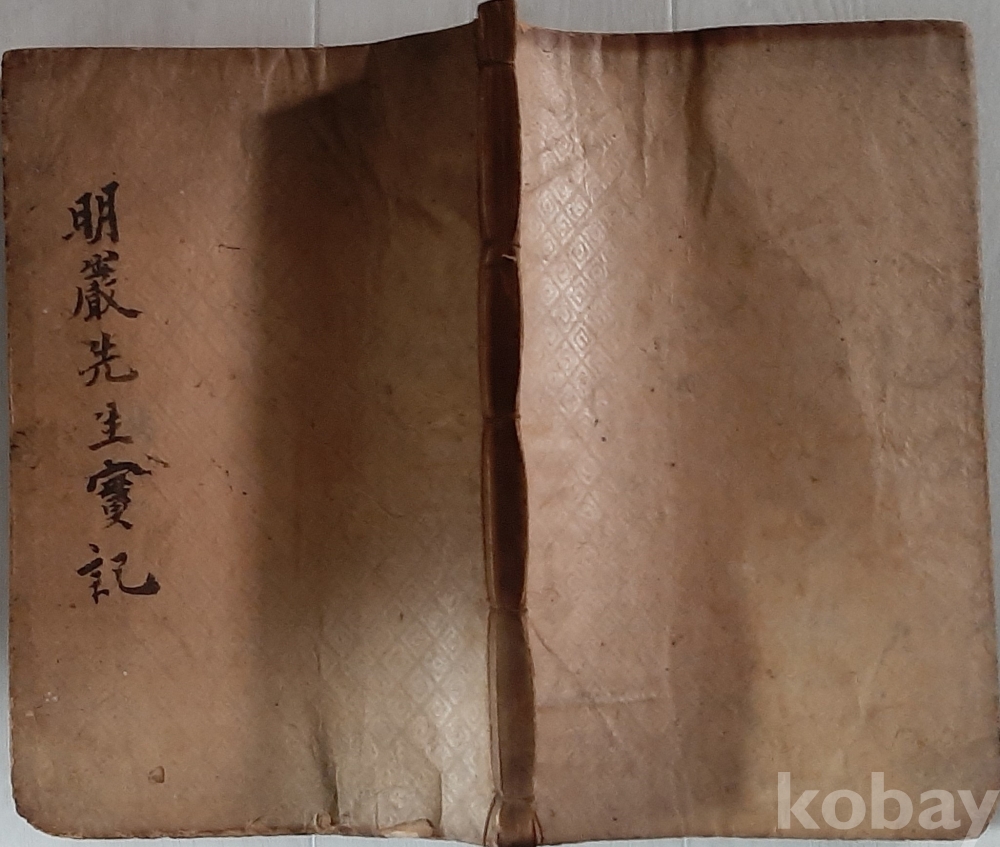 明巖先生實記
kobay